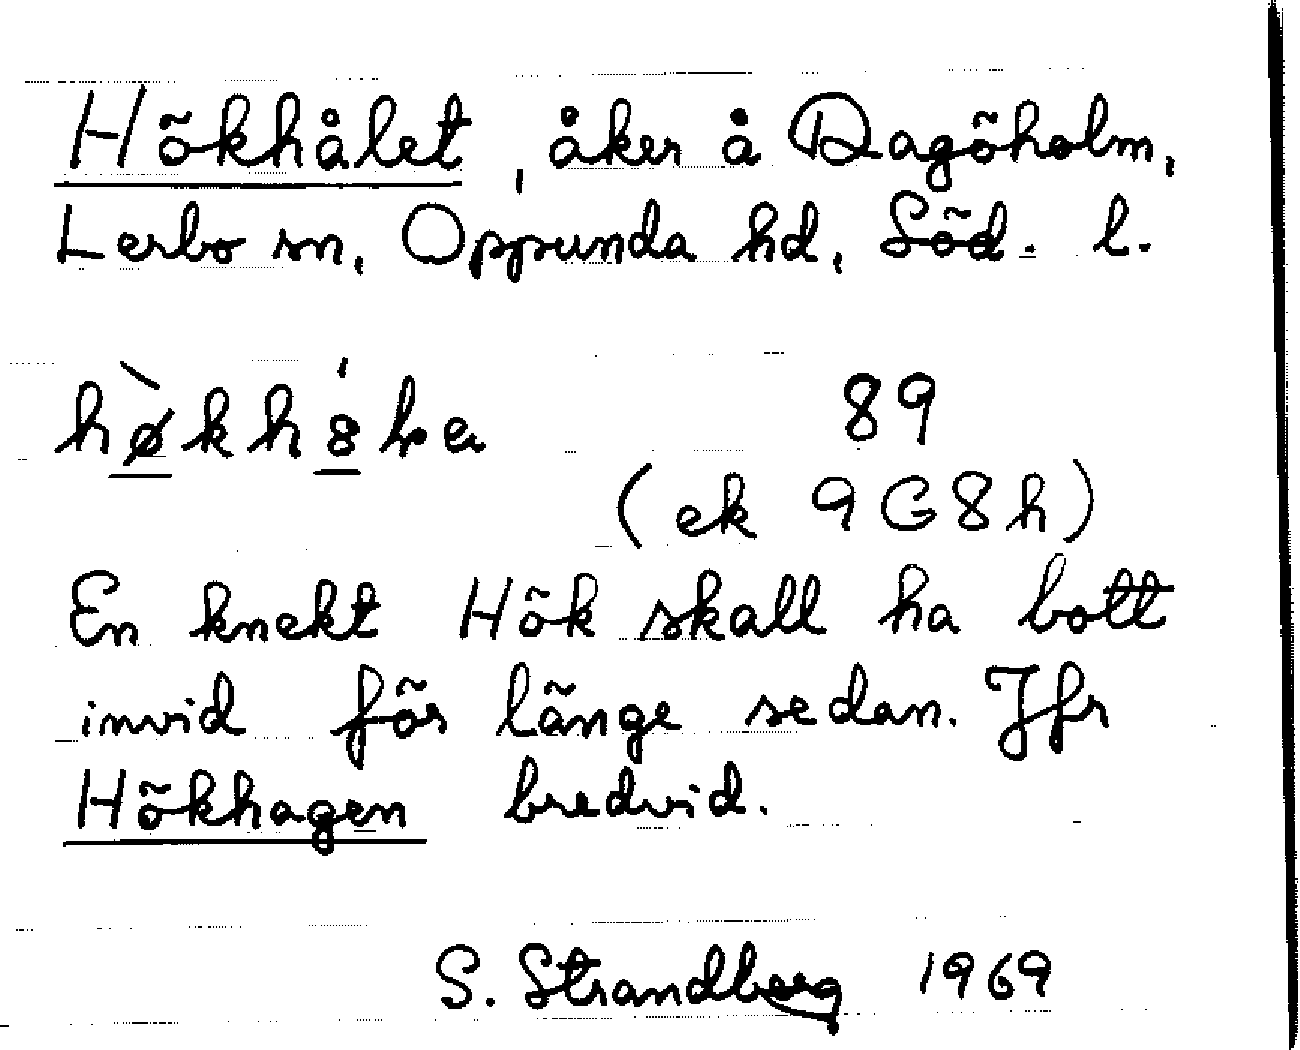 Hökhålet, åker å Dagöholm,
Lerbo sn, Oppunda hd, Söd. l.
89
(ek 9G8h)
En knekt Hök skall ha bott
invid för länge sedan. Jfr
Hökhagen bredvid.
S. Strandberg 1969